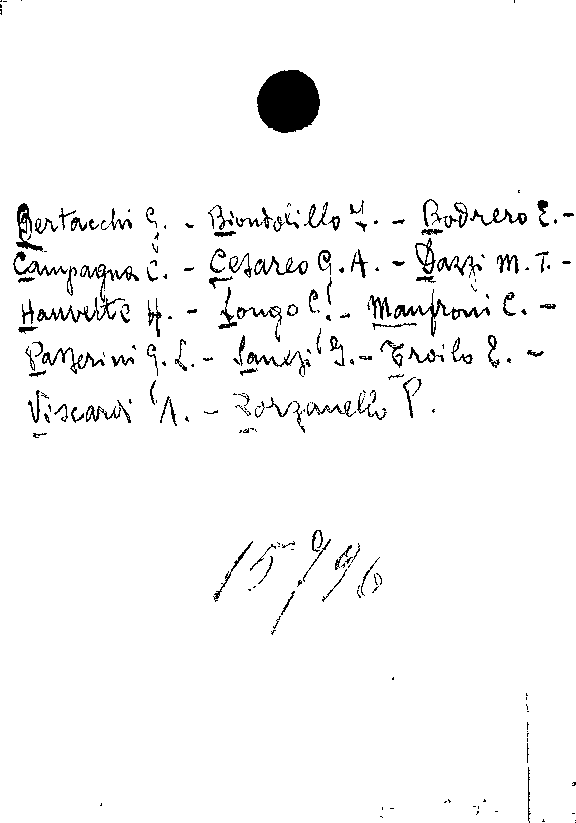 Bertacchi G. - Biondolillo F. - Bodrero E. -
Campagna C. - Cesareo G. A. - Dazzi M. T. -
Hauvette H. - Longo C. - Manfroni C. -
Passerini G. L. - Sanezi G. - Troilo E. -
Viscardi A. - Zorzanello P.